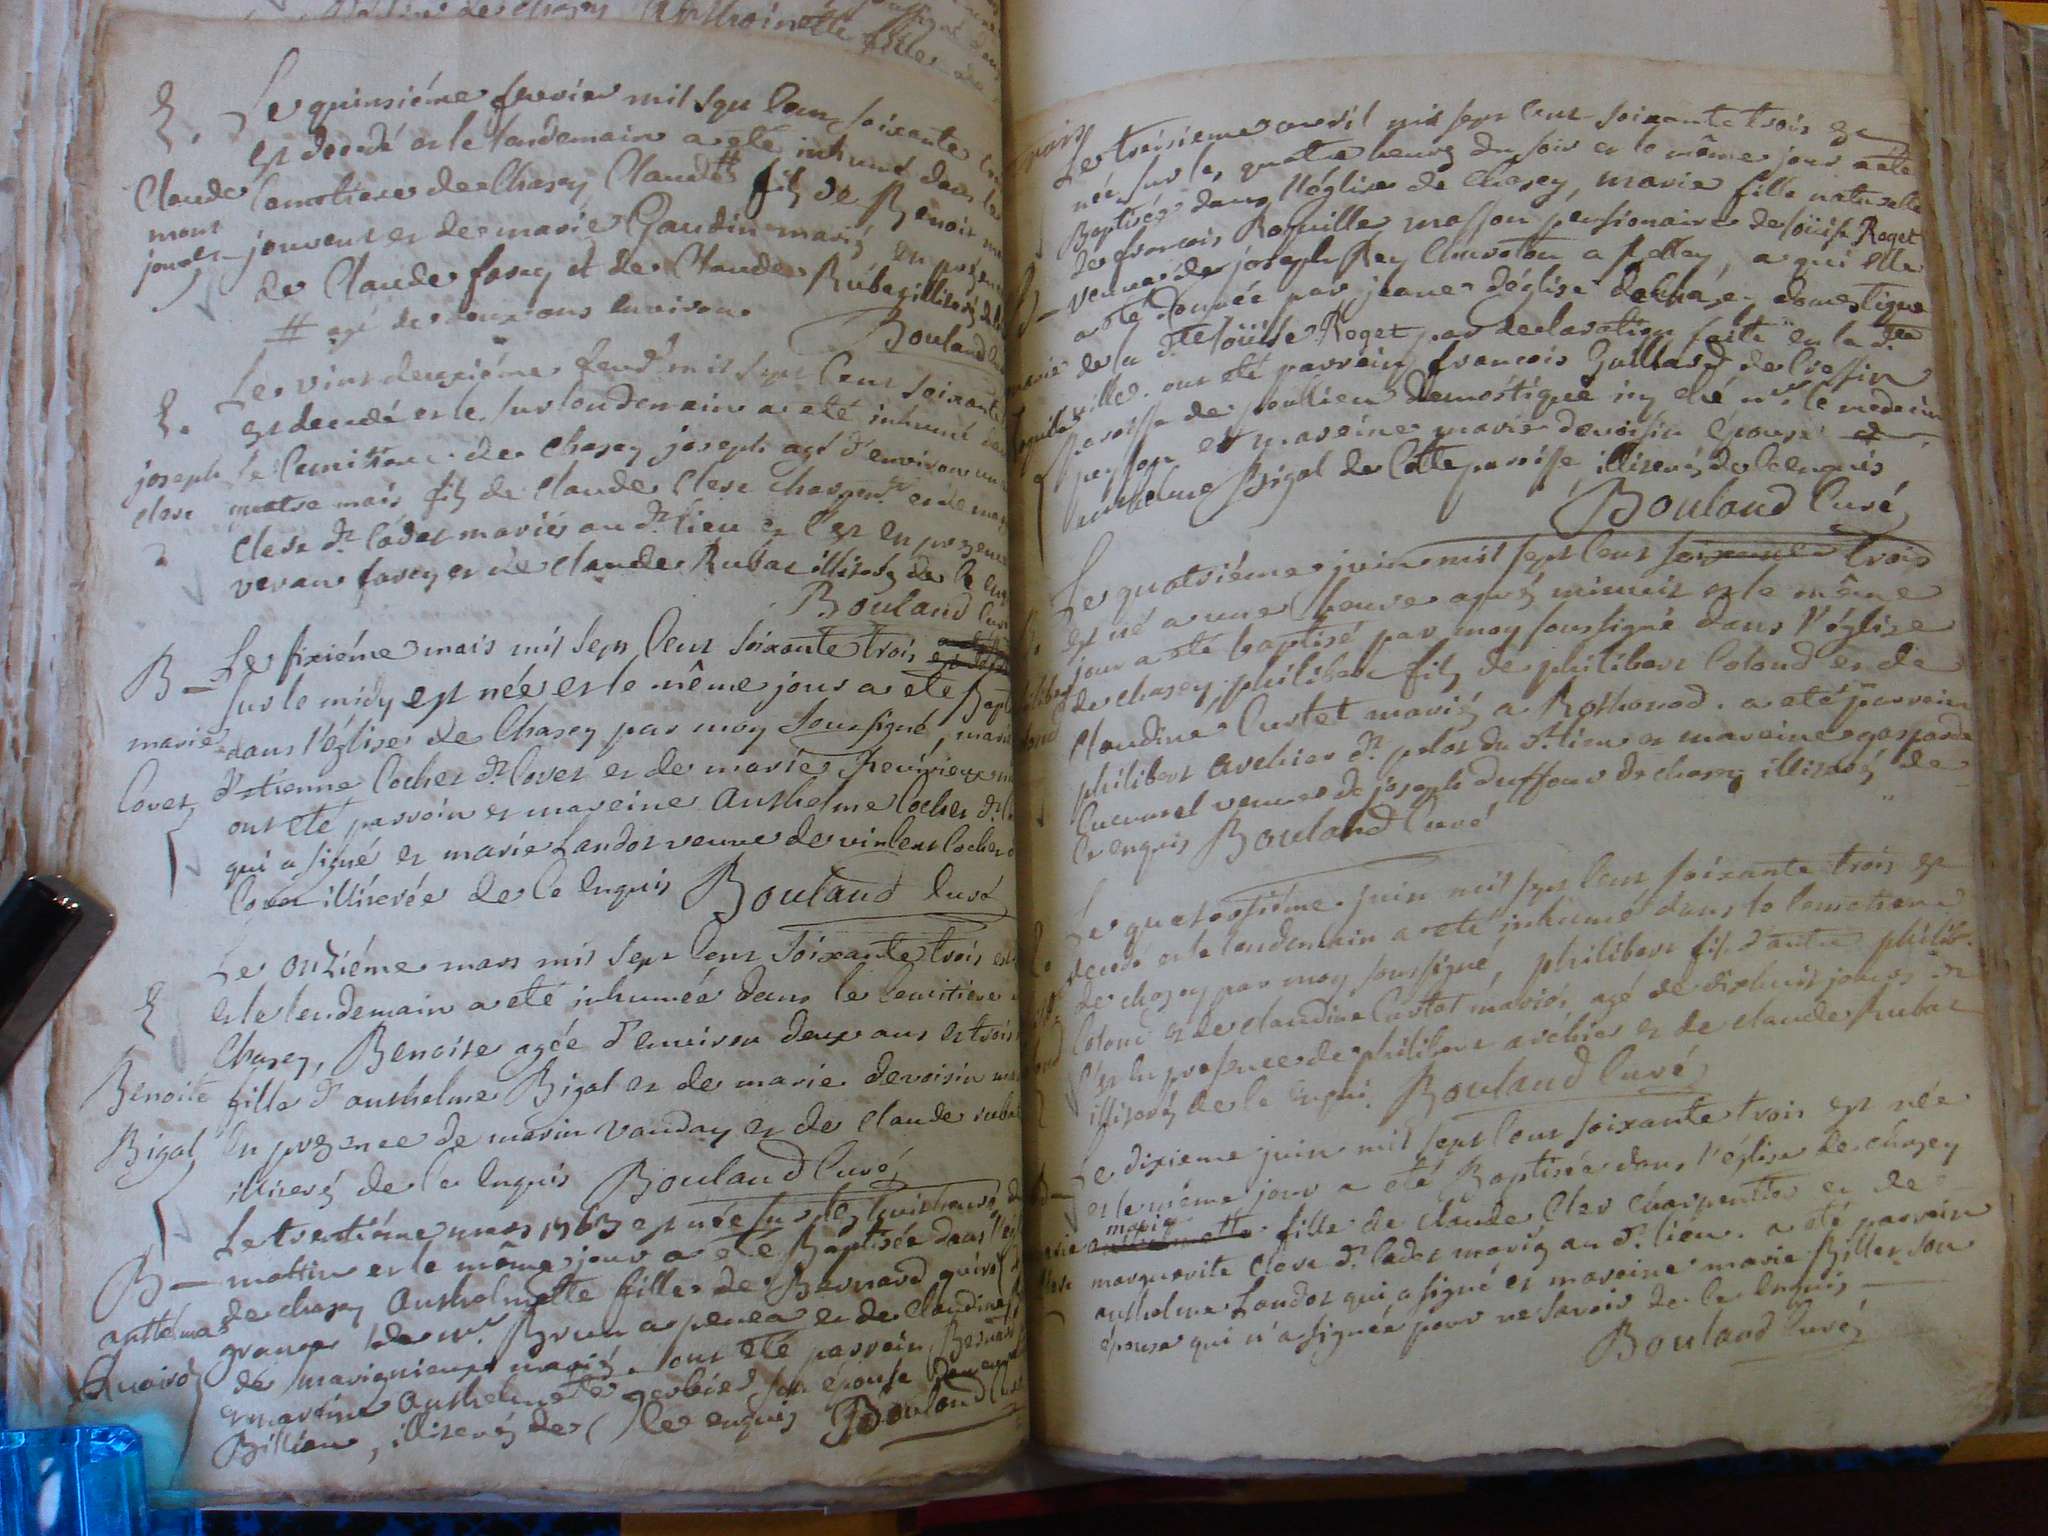 Le quinsiéme fevrier mil sept cent soixante
est decedé et le landemain a eté inhumé dans le
Claude cemetiere de Chasey Claude # fils de Benoit
jouvent et de marie Gaudin mariés en presence
de Claude fasey et de Claude Rubat illiterés de
# agé de deux ans environ
Bouland
Le vint deuxiéme fevr mil sept cent soixante
est decedé et le surlendemain a eté inhumé
joseph le cemitiere de Chasey joseph agé d'environ
clere quatre mois fils de Claude Clere charpentr et de
Clere dt Cadet mariés au dt lieu et c'est en presence
veran fasey et de claude Rubat illiterés de ce
Bouland Curé
B
Le sixiéme mars mil sept cent soixante trois
sur le midy est née et le même jour a eté
marie dans l'église de Chasey par moy soussigné, marie
Covet d'étienne Cochet dt Covet et de marie
ont eté parrein et mareine Anthelme Cochet dt
qui a signé et marie Landot veuve de vincent Cochet
Covet illiterée de ce enquis Bouland Curé
Le onziéme mars mil sept cent soixante trois est
et le lendemain a eté inhumée dans le cemitiere
Chasey, Benoite agée d'environ deux ans et trois
Benoite fille d'anthelme Bigat et de marie devoisin
Bigat en presence de marin vauday et de claude rubat
illiterés de ce enquis Bouland Curé
Le trentiéme mars 1763 est née sur les huit heures
B mattin et le même jour a eté Baptisée dans
de chasey Anthelmette fille de Bernard quirod
granger de mr. Brun a penea et de Claudine
de marignieux mariés. ont eté parrein Bernard
et mareine Anthelmette gerbied son épouse
Billieu, illiterés de ce enquis Bouland
Le troisieme avril mil sept cent soixante trois est
née sur les quatre heures du soir et le même jour a eté
Baptisée dans l'église de Chasey, marie fille naturelle
de francois Roquille masson pensionaire de loüise Roget
veuve de joseph Rey Charoton a, a qui elle
a eté donnée par jeane d'église domestique
de la dte loüise Roget par declaration faite en la dte
ville. ont eté parrein francois Gallard de Cressin
paroisse de poullieu domestique
et mareine marie devoisin épouse
anthelme Bigat de cette paroisse illiterés de ce enquis
Bouland Curé
Le quatriéme juin mil sept cent soixante trois
est né a une heure aprés minuit et le même
jour a eté baptisé par moy soussigné dans l'église
de chasey philibert fils de philibert Colond et de
Claudine Curtet mariés a Rothonod. a eté parrein
philibert Archier dt pelot du dt lieu et mareine gasparde
veuve de joseph duffour de chasey illiterés de
ce enquis Bouland Curé
Le quatorsiéme juin mil sept cent soixante trois est
decedé et le lendemain a eté inhumé dans le cemetiere
de chasey par moy soussigné, philibert fils d'autre philib.
Colond et de claudine Curtet mariés, agé de dixhuit jours et
c'est en presence de philibert archier et de claude Rubat
illiterés de ce enquis. Bouland Curé
Le dixieme juin mil sept cent soixante trois est née
et le même jour a eté Baptisée dans l'église de chasey
marie
fille de claude Clere charpentier et de
marguerite Clere dt Cadet mariés au dt lieu. a eté parrein
anthelme Landot qui a signé et mareine marie Billet son
épouse qui n'a signée pour ne savoir de ce enquis
Bouland Curé